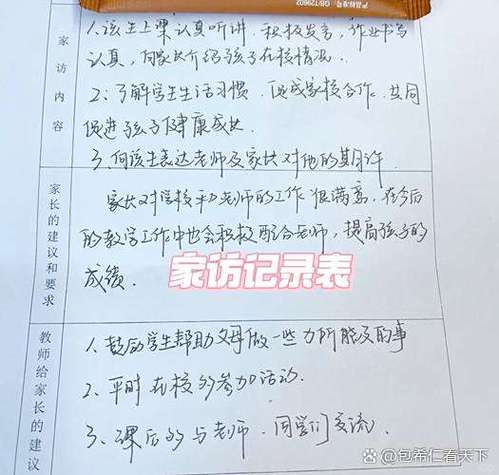 产品标准号:
GB/T29602
家访内容
1.该生上课认真听讲,积极发言,作业书写
认真,向家长介绍孩子在校情况.
2、了解学生生活习惯.促成家校合作.共同
促进孩子健康成长.
3.向该生表达老师及家长对他的期许.
家长的建议和要求
家长对学校和老师的工作很满意,在今后
的教学工作中也会积极配合老师,提高孩子的
成绩.
家访记录表
教师给家长的建议
1.鼓励学生帮助父母做一些力所能及的事
2、平时在校多参加活动.
3、课后多与老师.同学们交流.
@包希仁看天下